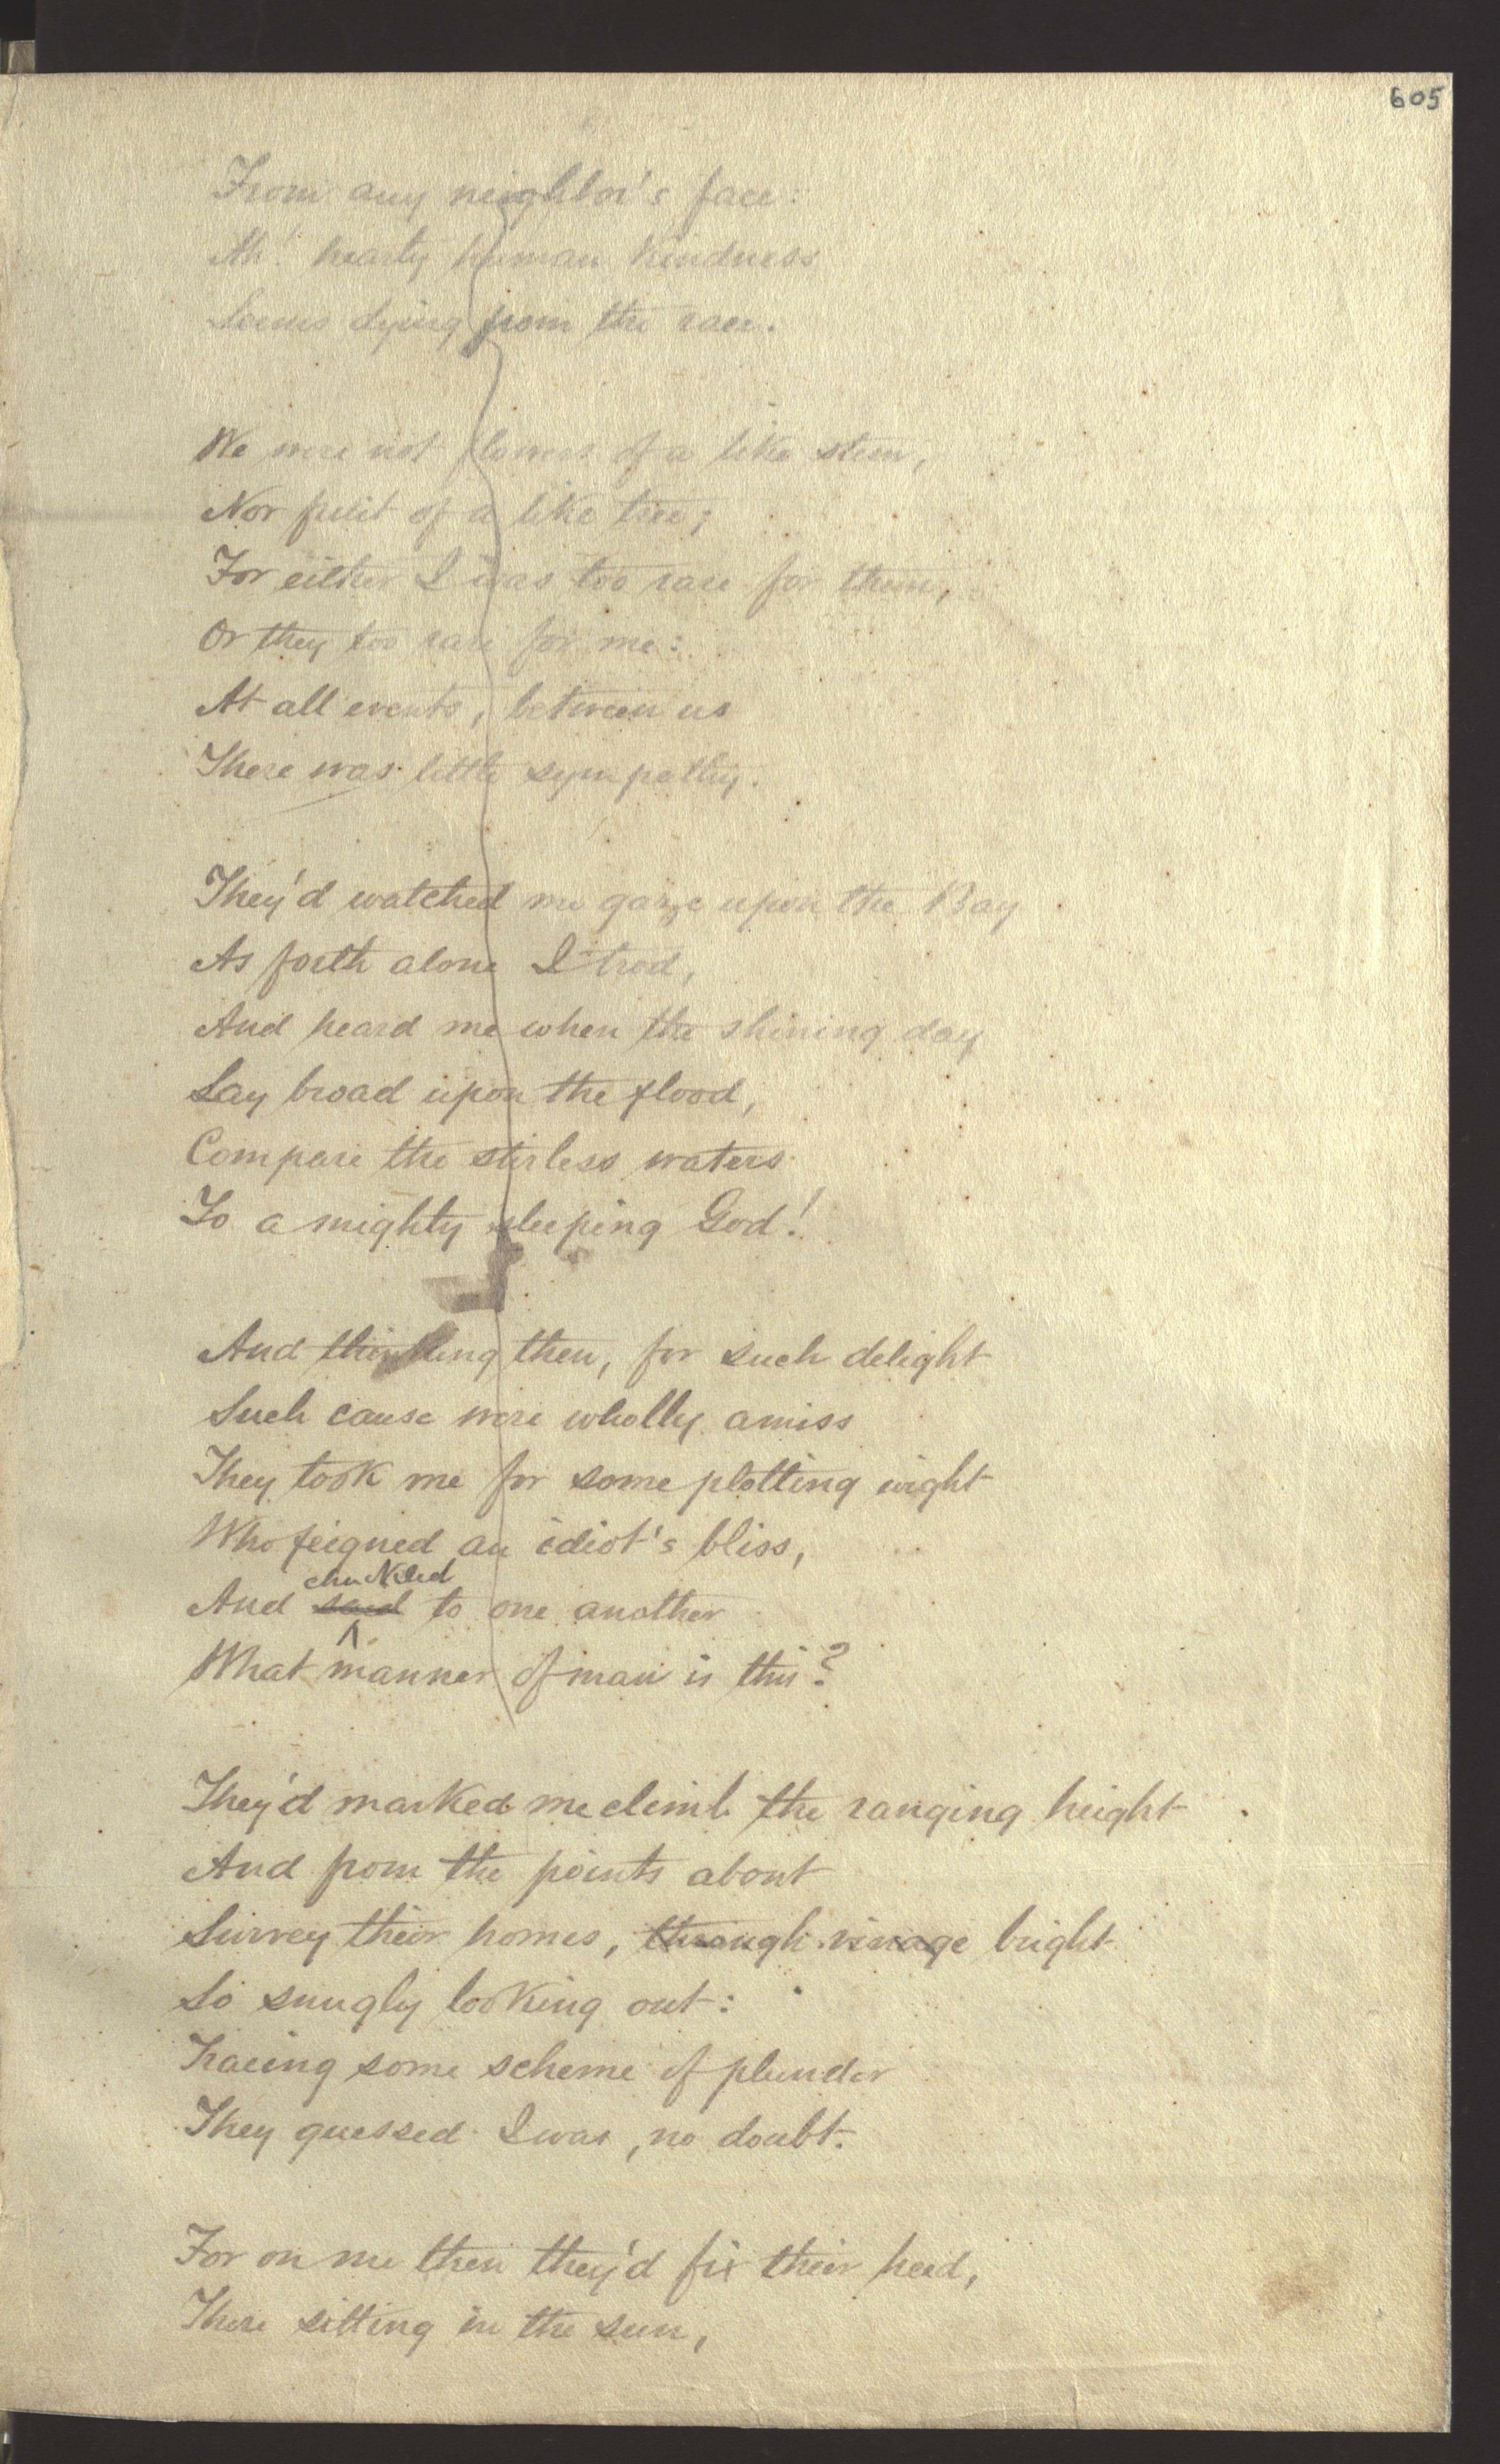 605
From any neighbor's face:
Ah! hearty human kindness
Seems dying from the race.
We were not flowers of a like stem,
Nor fruit of a like tree;
For either I was too rare for them,
Or they too rare for me:
At all events, between us
There was little sympathy.
They'd watched me gaze upon the Bay
As forth alone I trod,
And heard me when the shining day
Lay broad upon the flood,
Compare the stirless waters
To a mighty sleeping God!
And thinking then, for such delight
Such cause were wholly amiss
They took me for some plotting wight
Who feigned an idiot's bliss,
chuckled
And said to one another
What manner of man is this?
They'd marked me climb the ranging height
And from the points about
Survey their homes, through visage bright
So snugly looking out:
Tracing some scheme of plunder
They guessed I was, no doubt.
For on me then they'd fix their heed,
There sitting in the sun,